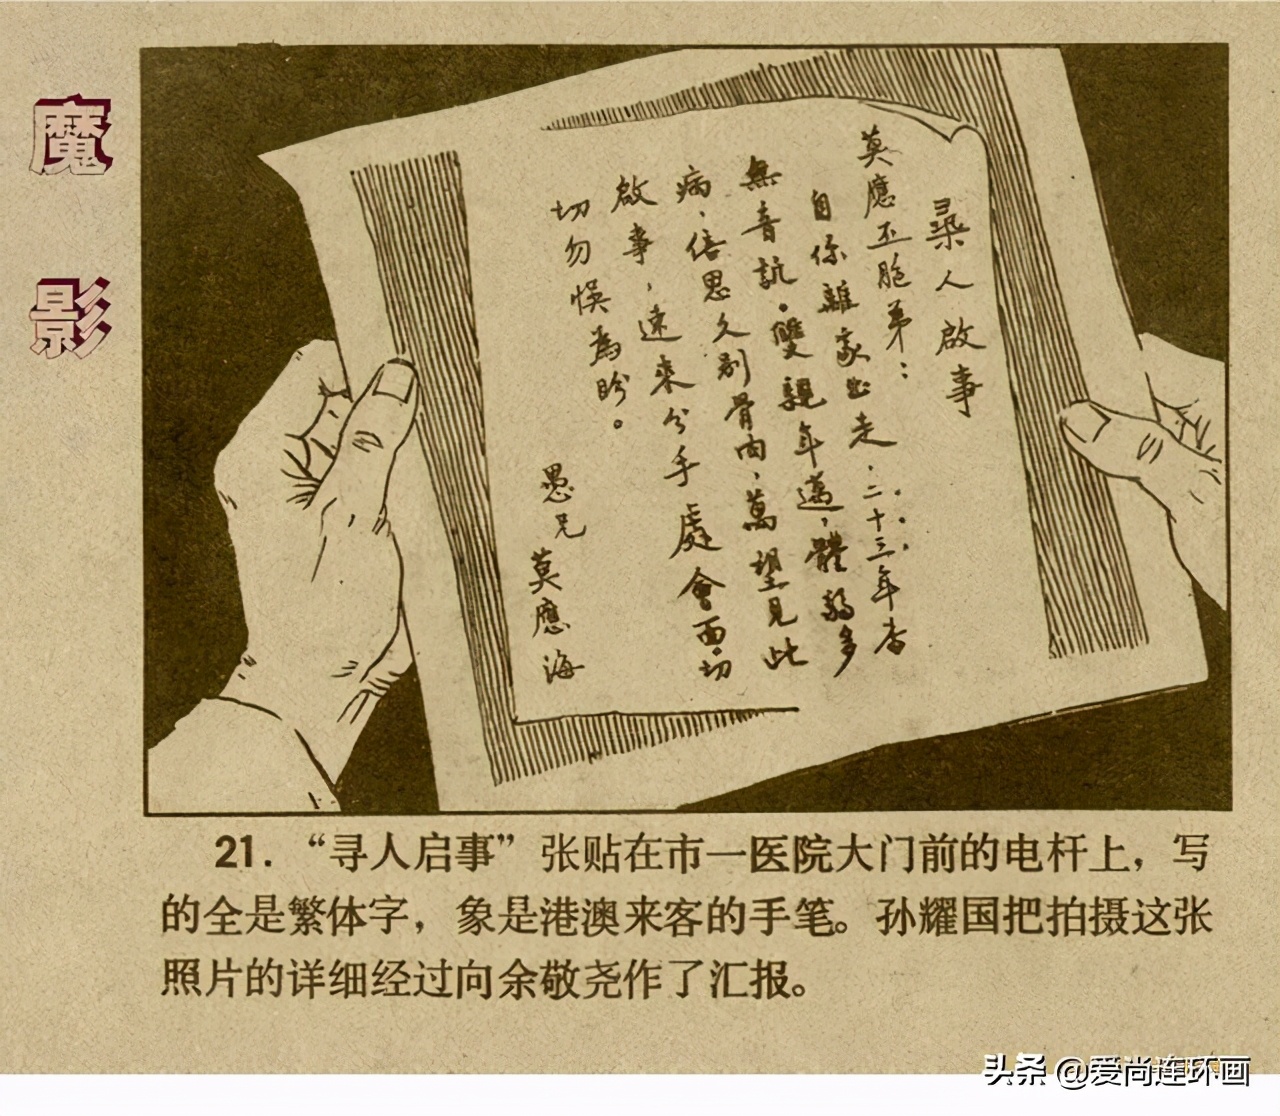 魔影
尋人啟事
莫應丕胞弟：
自你離家出走，二十三年杳
無音訊。雙親年邁，體弱多
病，倍思久别骨肉，萬望見此
啟事，速來分手處會面。切
切勿悮為盼。
愚兄
莫應海
21．“寻人启事”张贴在市一医院大门前的电杆上，写
的全是繁体字，象是港澳来客的手笔。孙耀国把拍摄这张
照片的详细经过向余敬尧作了汇报。
头条 @爱尚连环画